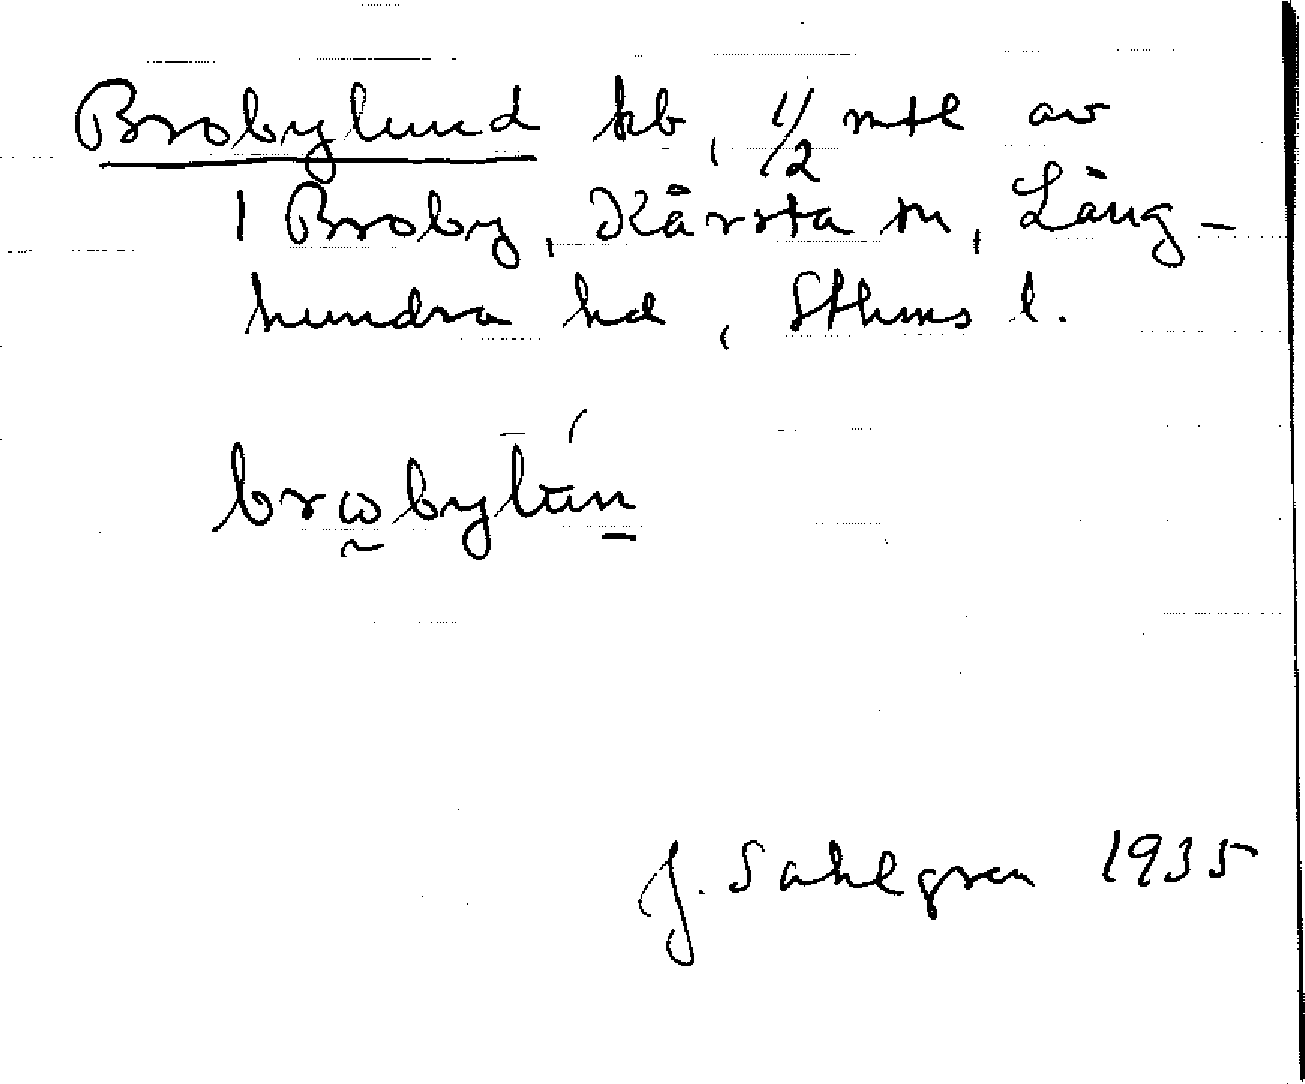 Brobylund hb, 1/2 mtl av
1 Broby, Kårsta sn, Lång-
hundra hd, Sthms l.
brωbylūn
J. Sahlgren 1935